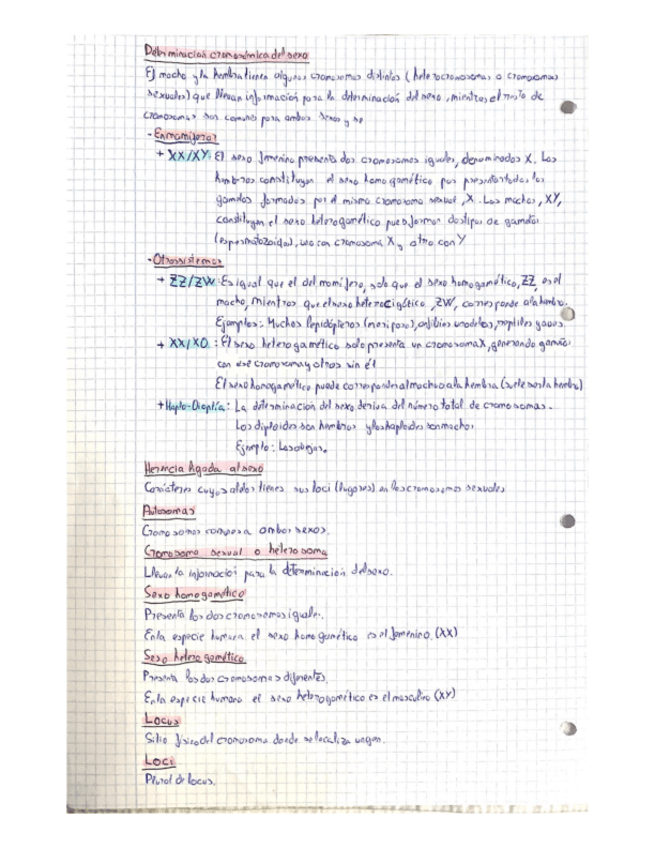 Determinación cromosómica del sexo
El macho y la hembra tienen algunos cromosomas distintos (heterocromosomas o cromosomas
sexuales) que llevan información para la determinación del sexo, mientras el resto de
cromosomas son comunes para ambos sexos y se
- En mamíferos
+ XX/XY: El sexo femenino presenta dos cromosomas iguales, denominados X. Las
hembras constituyen el sexo homogamético por presentar todos los
gametos formados por el mismo cromosoma sexual, X. Los machos, XY,
constituyen el sexo heterogamético pues forman dos tipos de gametos
(espermatozoides), uno con cromosoma X y otro con Y
- Otros sistemas
+ ZZ/ZW: Es igual que el del mamífero, solo que el sexo homogamético, ZZ, es el
macho, mientras que el sexo heterocigótico, ZW, corresponde a la hembra.
Ejemplos: Muchos lepidópteros (mariposa), anfibios urodelos, reptiles y aves.
+ XX/XO: El sexo heterogamético solo presenta un cromosoma X, generando gametos
con ese cromosoma y otros sin él
El sexo homogamético puede corresponder al macho o a la hembra (suele ser la hembra)
+ Haplo-Diploidía: La determinación del sexo deriva del número total de cromosomas.
Los diploides son hembras y los haploides son machos
Ejemplo: Las abejas.
Herencia ligada al sexo
Caracteres cuyos alelos tienen sus loci (lugares) en los cromosomas sexuales
Autosomas
Cromosomas comunes a ambos sexos.
Cromosoma sexual o heterosoma
Llevan la información para la determinación del sexo.
Sexo homogamético
Presenta los dos cromosomas iguales.
En la especie humana el sexo homogamético es el femenino. (XX)
Sexo heterogamético
Presenta los dos cromosomas diferentes.
En la especie humana el sexo heterogamético es el masculino (XY)
Locus
Sitio físico del cromosoma donde se localiza un gen.
Loci
Plural de locus.